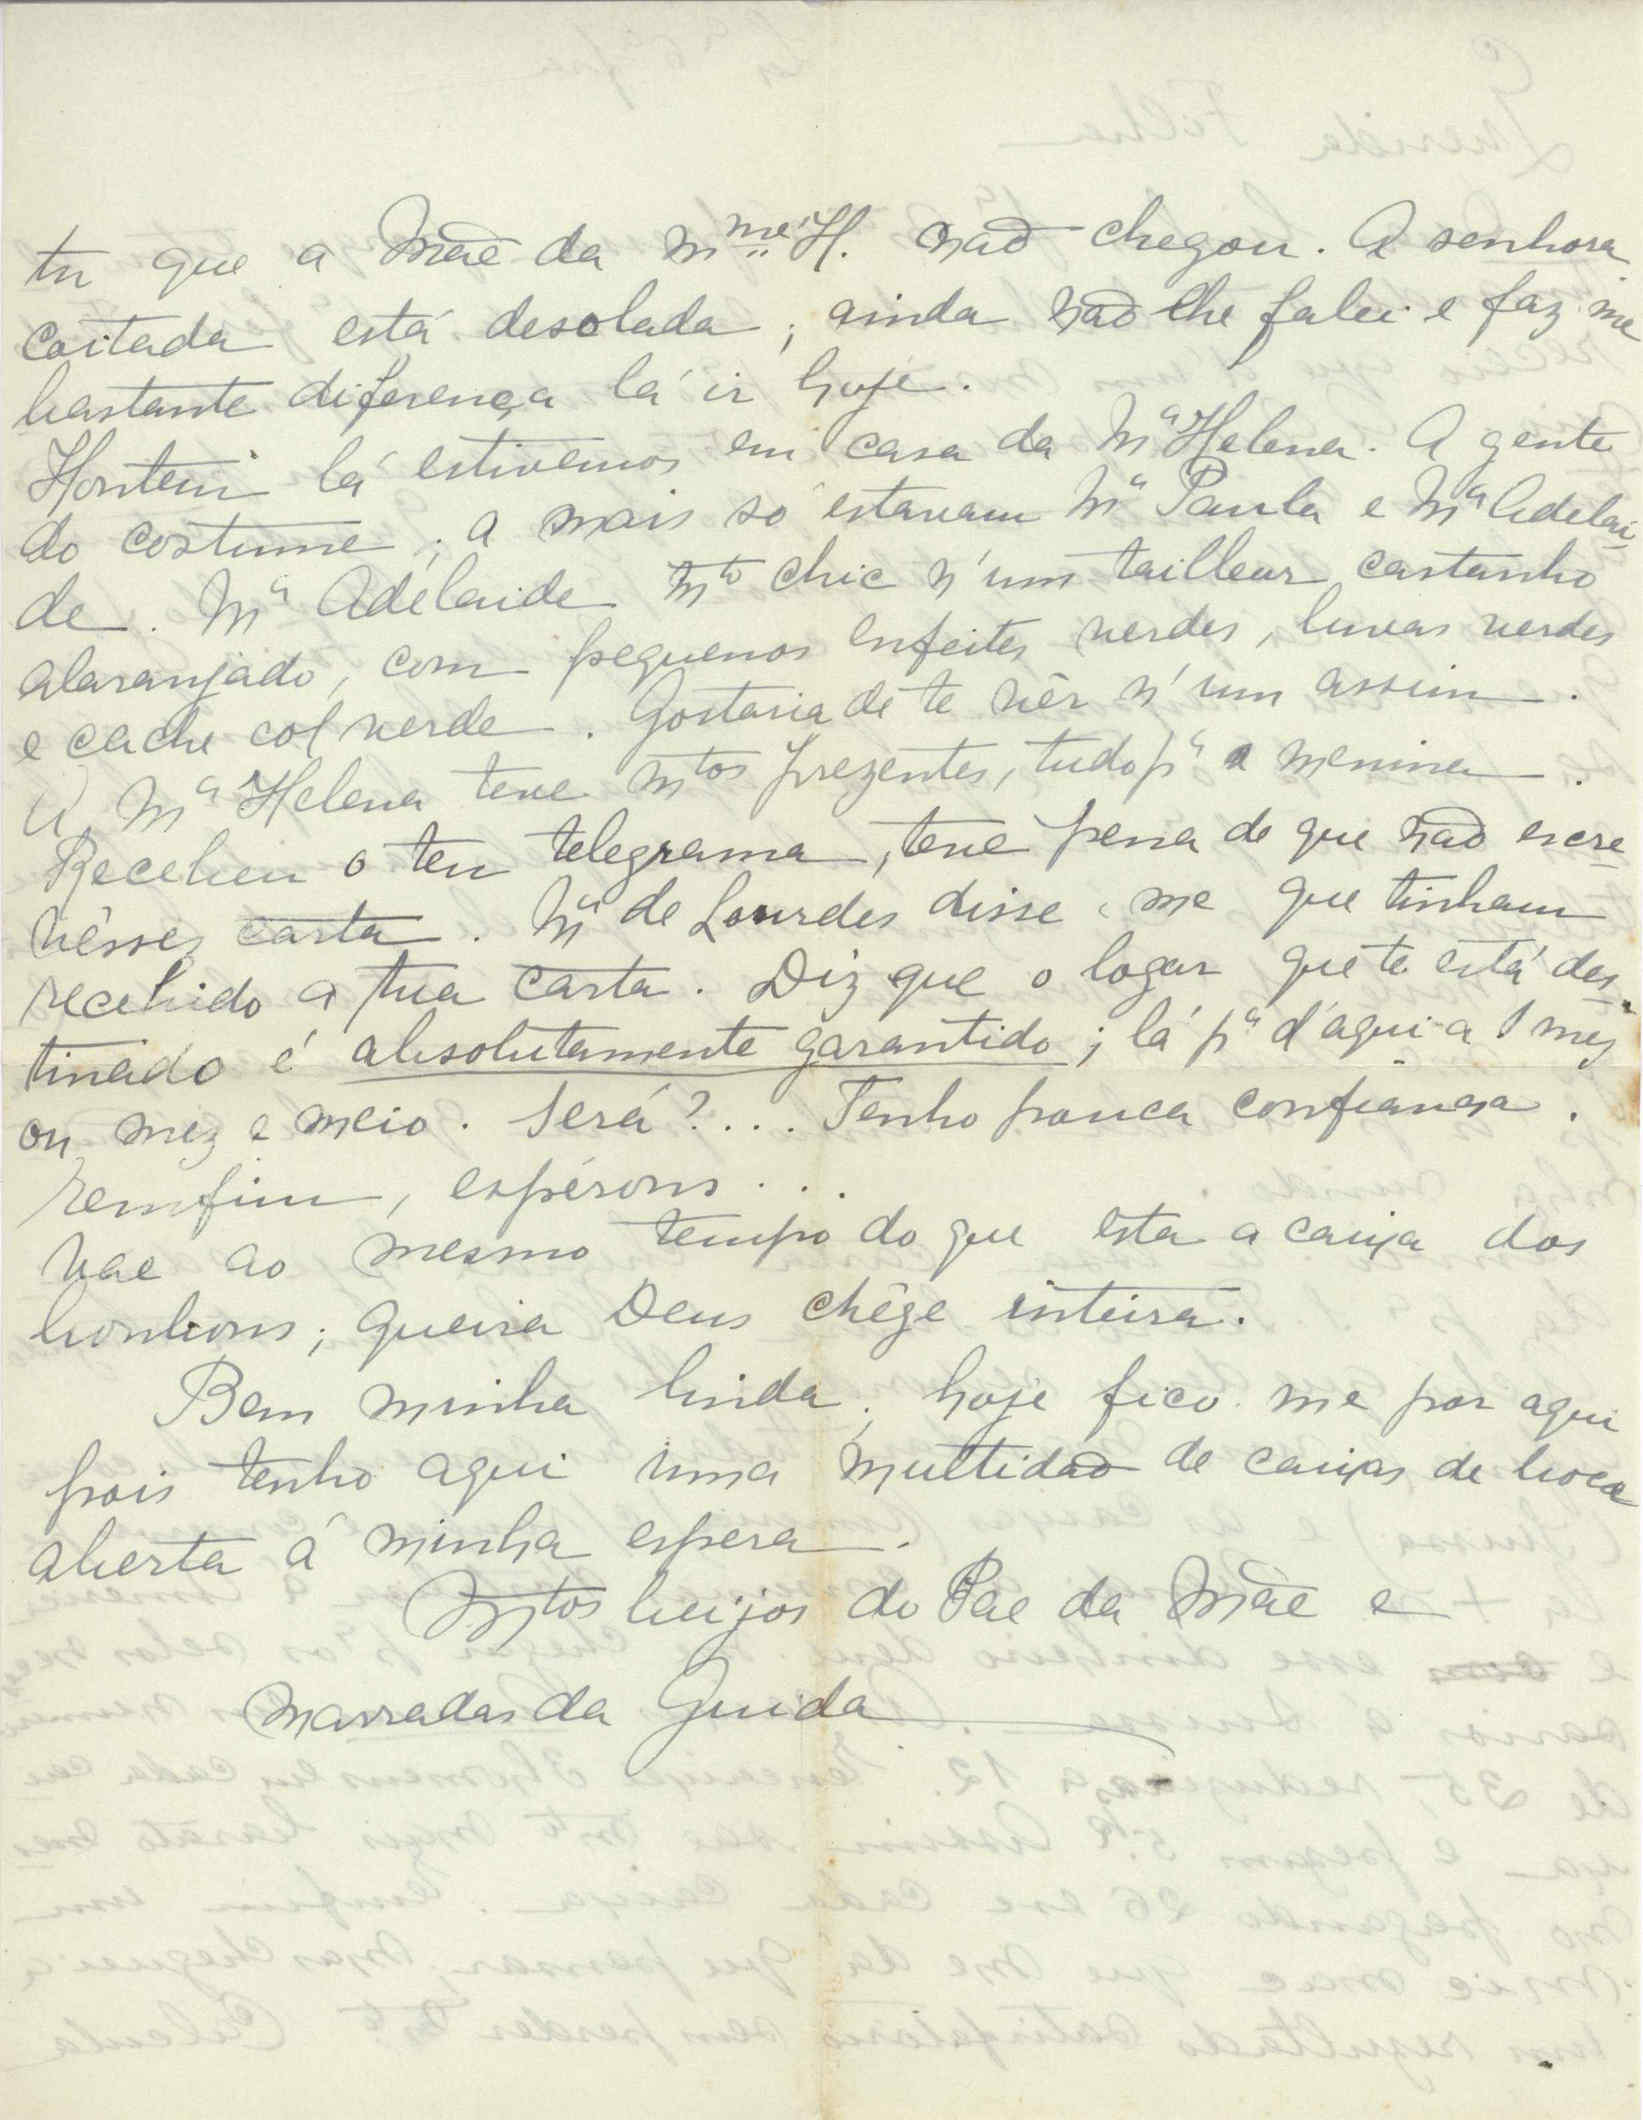 tu que a Mãe da Mme H. não chegou. A senhora
coitada está desolada; ainda não lhe falei e faz-me
bastante diferença lá ir hoje.
Hontem lá estivemos em casa da Mª Helena. A gente
do costume; a mais só estavam Mª Paula e Mª Adelai-
de. Mª Adelaide mto chic n'um tailleur castanho
alaranjado, com pequenos enfeites verdes, luvas verdes
e cache col verde. Gostaria de te vêr n'um assim.
A Mª Helena teve mtos prezentes, tudo pª a menina.
Recebeu o teu telegrama, teve pena de que não escre-
vêsses carta. Mª de Lourdes disse-me que tinham
recebido a tua carta. Diz que o logar que te está des-
tinado é absolutamente garantido; lá pª d'aqui a 1 mez
ou mez e meio. Será?... Tenho pouca confiança.
emfim, espérons...
Vae ao mesmo tempo do que esta a caixa dos
bonbons; queira Deus chêge inteira.
Bem minha linda, hoje fico-me por aqui
pois tenho aqui uma multidão de caixas de boca
aberta á minha espera.
Mtos beijos do Pae da Mãe e
marradas da Guida